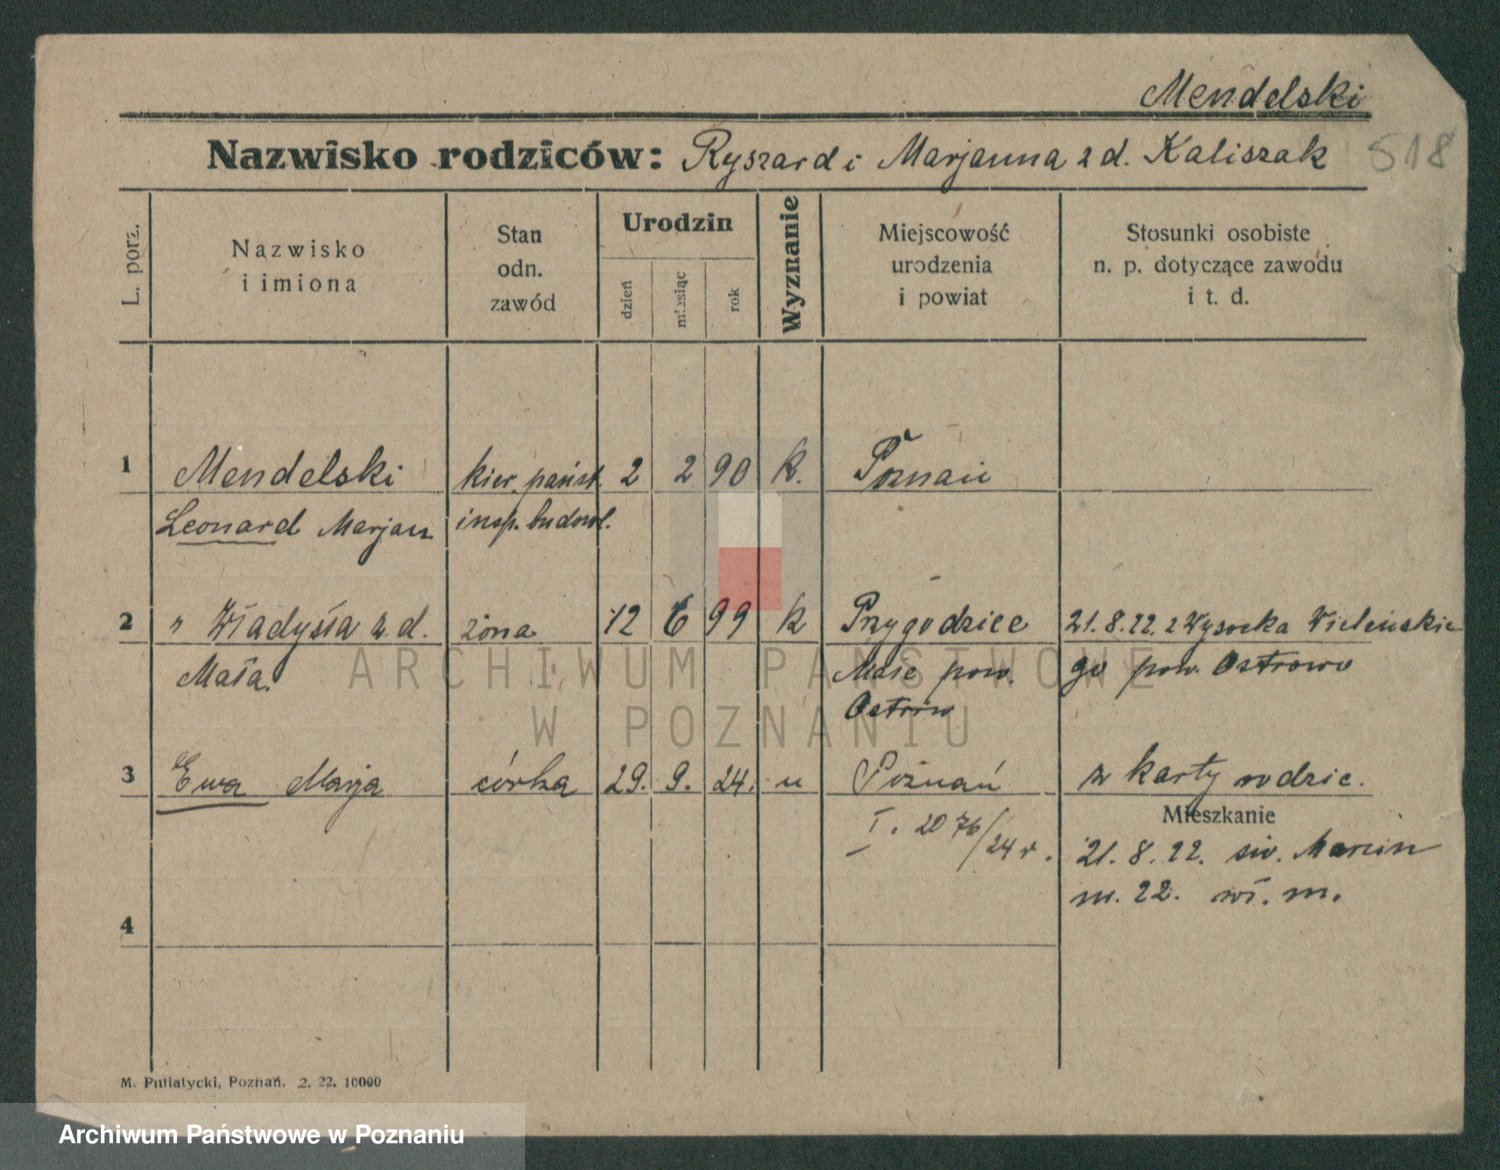 Mendelski
Nazwisko rodziców: Ryszard i Marjanna z d. Kaliszak 518
L. porz.
Nazwisko
i imiona
Stan
odn.
zawód
Urodzin
dzień
miesiąc
rok
Wyznanie
Miejscowość
urodzenia
i powiat
Stosunki osobiste
n. p. dotyczące zawodu
i t. d.
1 Mendelski kier. państ. 2 2 90 k. Poznań
Leonard Marjan insp. budowl.
2 " Władysła z d. żona 12 6 99 k Przygodzice 21.8.22. z Wysocka Wieleńskie
Mała. Małe pow. go pow. Ostrowo
Ostrów
3 Ewa Marja córka 29. 9. 24. " Poznań z karty rodzic.
Mieszkanie
I. 2076/24 r. 21.8.22. św. Marcin
m. 22. wł. m.
4
M. Putiatycki, Poznań. 2. 22. 10000
ARCHIWUM PAŃSTWOWE
W POZNANIU
Archiwum Państwowe w Poznaniu